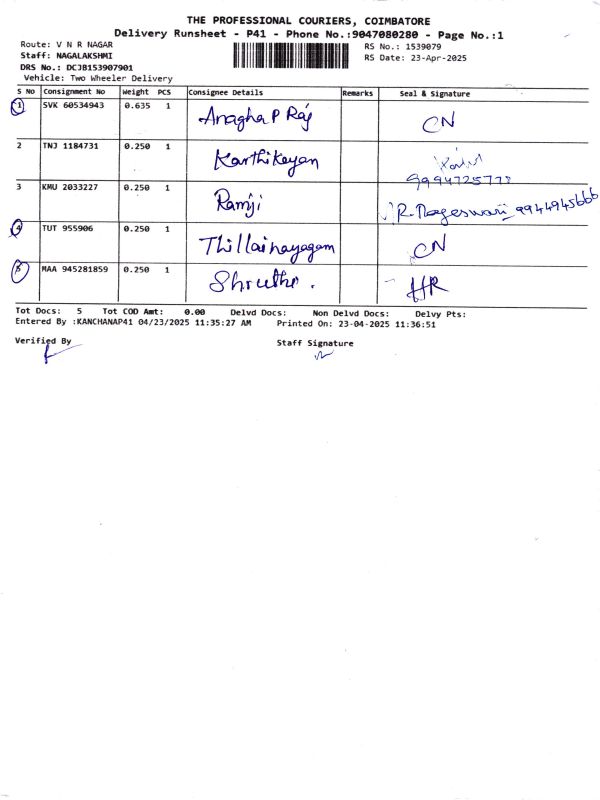 THE PROFESSIONAL COURIERS, COIMBATORE
Delivery Runsheet - P41 - Phone No.:9047080280 - Page No.:1
Route: V N R NAGAR
RS No.: 1539079
Staff: NAGALAKSHMI
RS Date: 23-Apr-2025
DRS No.: DCJB153907901
Vehicle: Two Wheeler Delivery
S No Consignment No Weight PCS Consignee Details Remarks Seal & Signature
1 SVK 60534943 0.635 1 Anagha P Raj CN
2 TNJ 1184731 0.250 1 Karthikeyan
3 KMU 2033227 0.250 1 Ramji R. Nageswari 9944945666
4 TUT 955906 0.250 1 Thillainayagam CN
5 MAA 945281859 0.250 1 Shruthi. HR
Tot Docs: 5 Tot COD Amt: 0.00 Delvd Docs: Non Delvd Docs: Delvy Pts:
Entered By :KANCHANAP41 04/23/2025 11:35:27 AM Printed On: 23-04-2025 11:36:51
Verified By Staff Signature